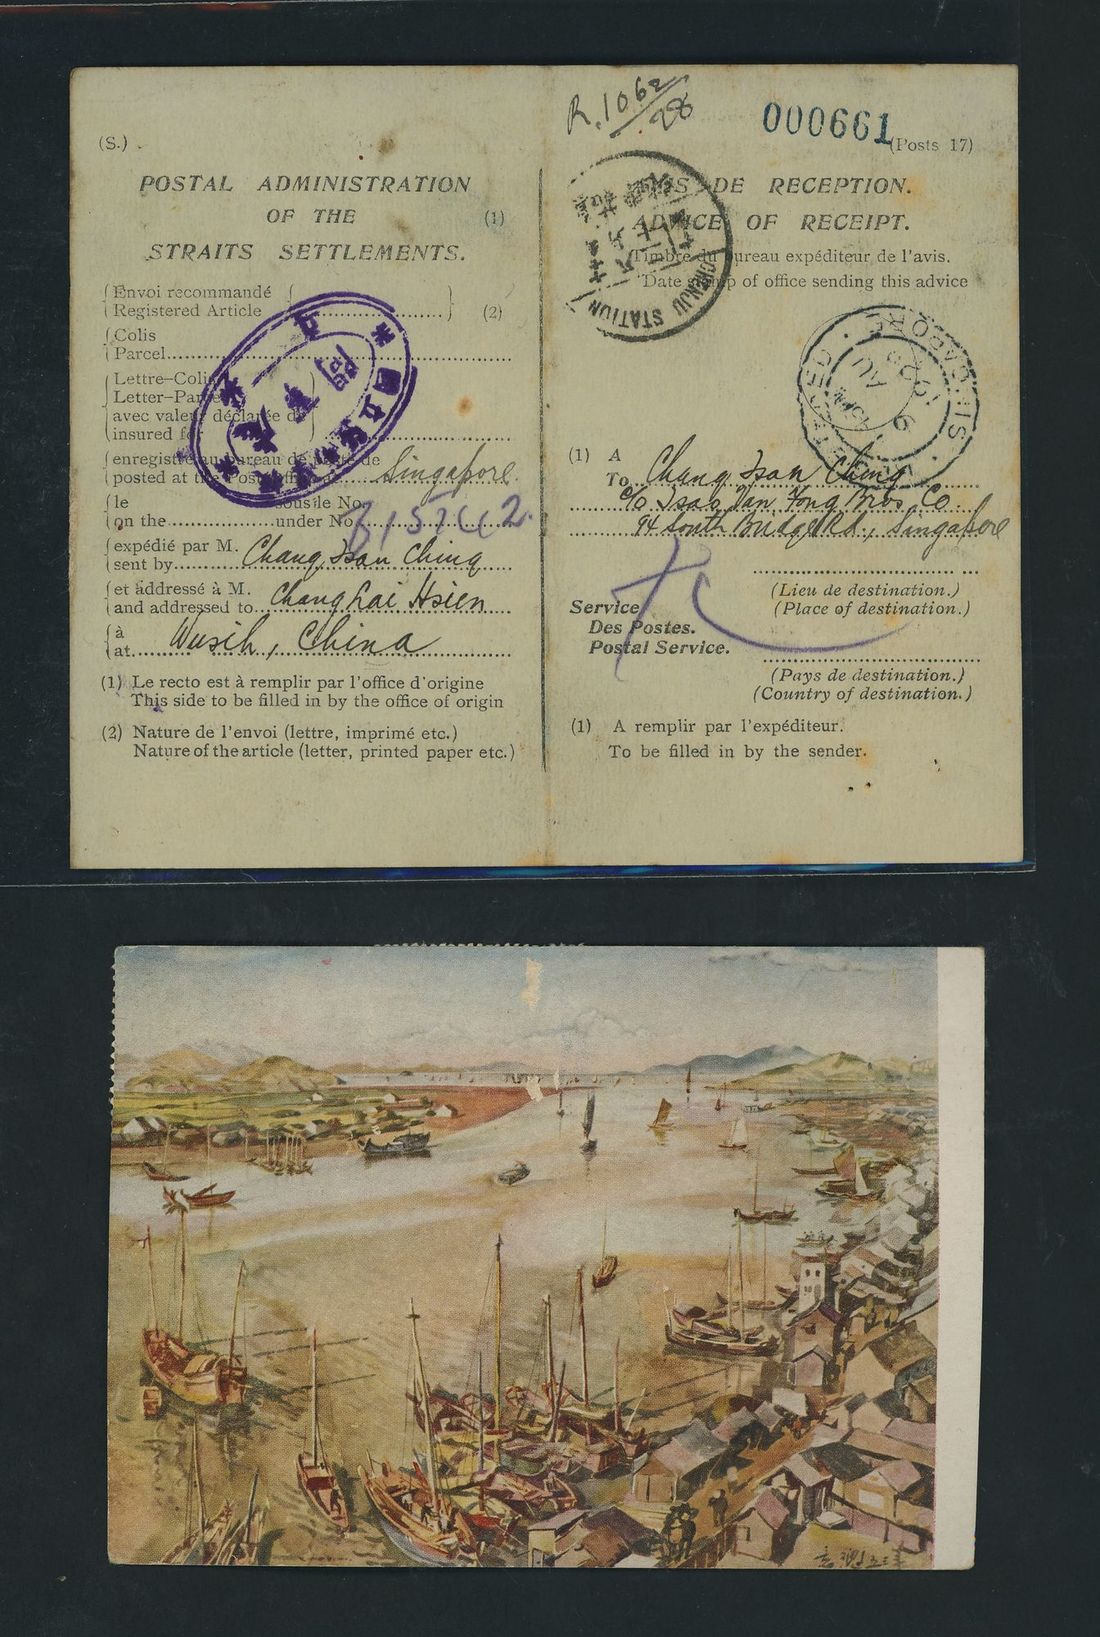 (S.)
POSTAL ADMINISTRATION
OF THE (1)
STRAITS SETTLEMENTS.
Envoi recommandé
Registered Article (2)
Colis
Parcel
Lettre-Colis
Letter-Parcel
avec valeur déclarée de
insured for
enregistré au bureau de poste de
posted at the Post Office Singapore
le sous le No.
on the under No.
expédié par M.
sent by Chang Tsan Ching
et addressé à M.
and addressed to Changhai Hsien
à
at Wusih, China
(1) Le recto est à remplir par l'office d'origine
This side to be filled in by the office of origin
(2) Nature de l'envoi (lettre, imprimé etc.)
Nature of the article (letter, printed paper etc.)
R.1062/28
000661
(Posts 17)
DE RECEPTION.
ADVICE OF RECEIPT.
Timbre du bureau expéditeur de l'avis.
Date stamp of office sending this advice
CHENJU STATION
REGISTERED SINGAPORE
(1) A
To Chang Tsan Ching
c/o Tsao Van Fong Bros. Co
94 South Bridge Rd, Singapore
(Lieu de destination.)
(Place of destination.)
Service
Des Postes.
Postal Service.
(Pays de destination.)
(Country of destination.)
(1) A remplir par l'expéditeur.
To be filled in by the sender.